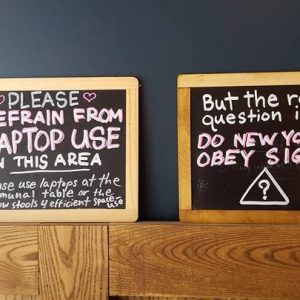 PLEASE
EFRAIN FROM
APTOP USE
N THIS AREA
ase use laptops at the
munal table or the
ow stools 4 efficient space use
But the re
question i
DO NEW YO
OBEY SIG
?